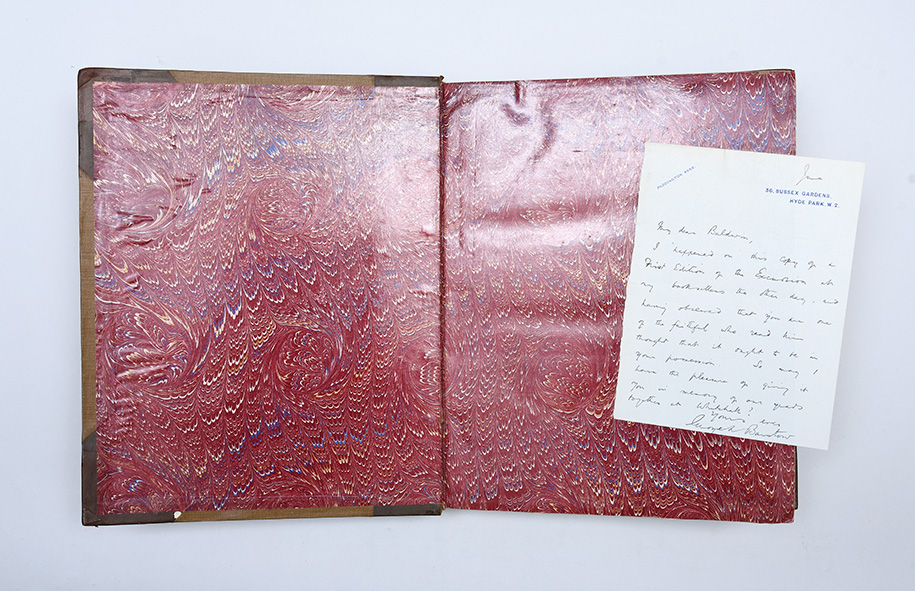 June
PADDINGTON
36, SUSSEX GARDENS,
HYDE PARK, W.2.
My dear Baldwin,
I happened on this copy of a
First Edition of the Excursion at
my booksellers the other day, and
having observed that you are one
of the faithful who read him
thought that it ought to be in
your possession. So may I
have the pleasure of giving it
you in memory of our years
together at Whitehall?
Yours ever
George Barstow